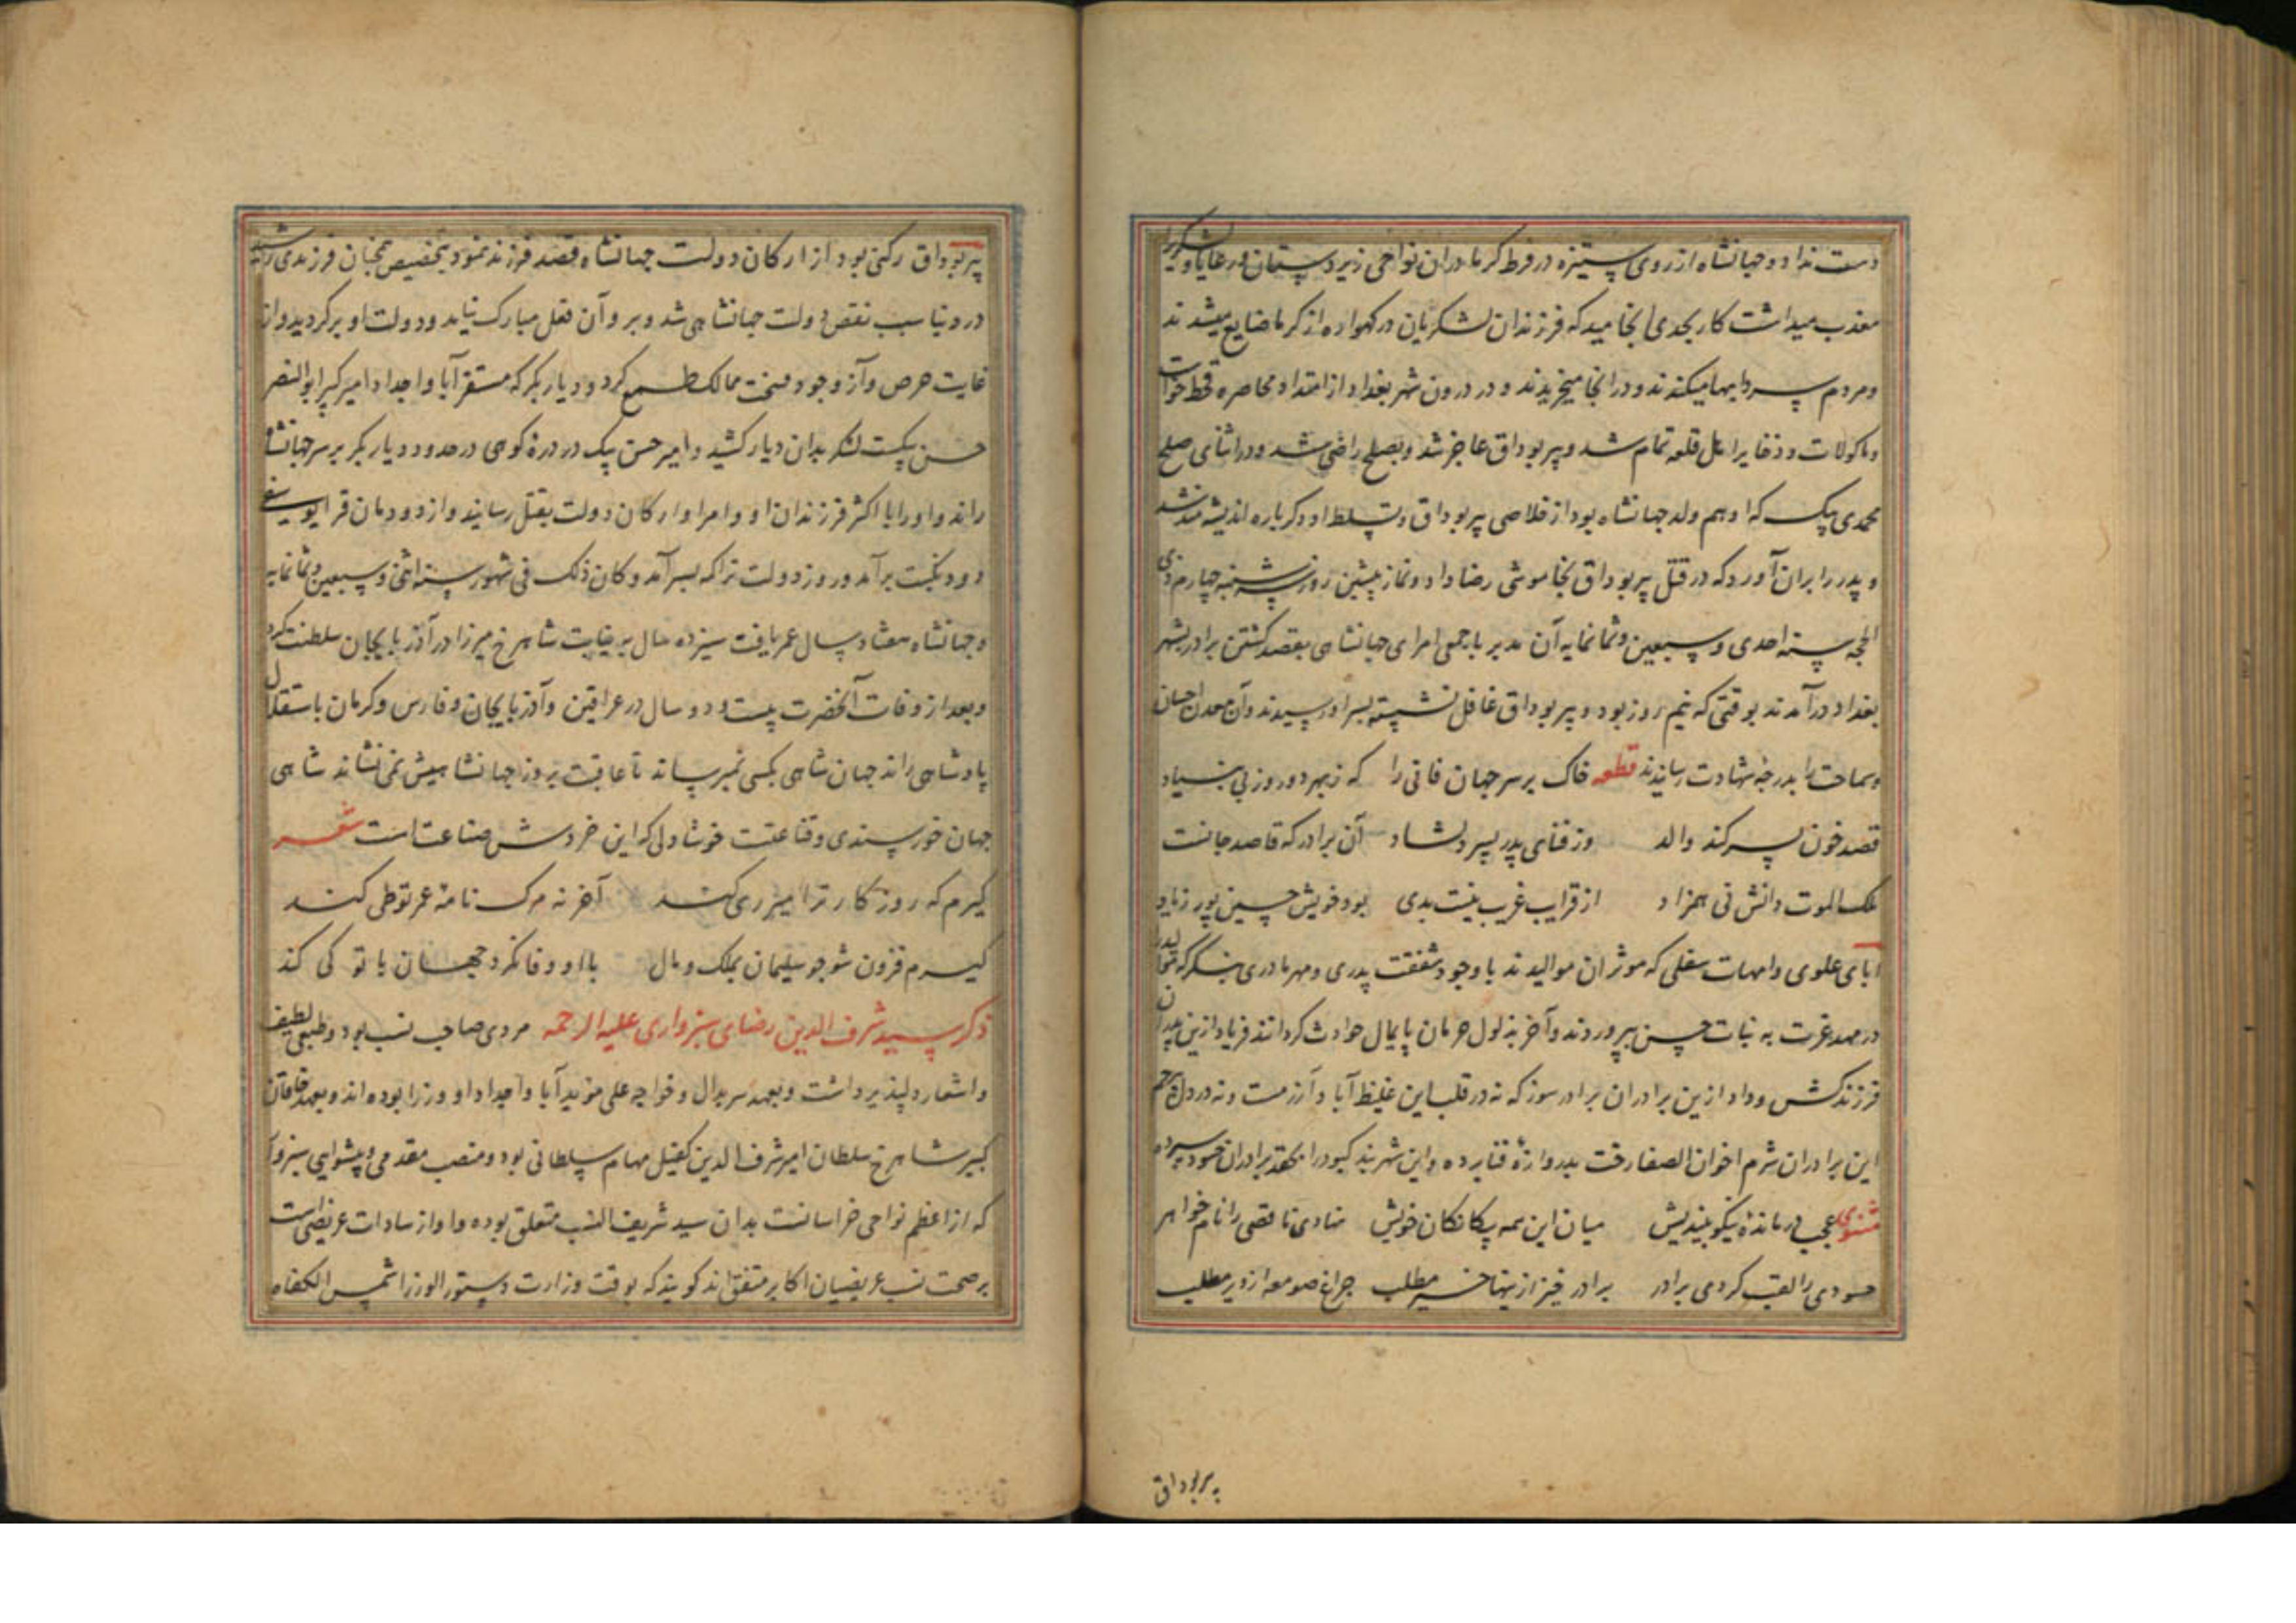 دست نداد و جهانشاه از روی ستیزه در فرط کرما در ان نواحی زیردستان و رعایا و لشکریرا
معذب میداشت کار بجدی انجامید که فرزندان لشکریان در کهواره از کرما ضایع میشدند
و مردم سردابها میکندند و در انجا میخزیدند و در درون شهر بغداد از امتداد محاصره قحط خواست
و ماکولات و ذخایر اهل قلعه تمام شد و پیربوداق عاجز شد و بصلح راضی شد و در اثنای صلح
محمدی بیک که او هم ولد جهانشاه بود از خلاصی پیربوداق و تسلط او دکرباره اندیشه مند شد
و پدر را بران آورد که در قتل پیربوداق بخاموشی رضا داد و نماز پیشین روز سه شنبه چهارم ذی
الحجه سنه احدی و سبعین و ثمانمایه آن مدبر با جمعی امرای جهانشاهی بقصد کشتن برادر بشهر
بغداد در آمدند بوقتی که نیم روز بود و پیربوداق غافل نشسته بسر او رسیدند و آن معدن احسان
و سماحت را بدرجه شهادت رسانیدند قطعه خاک بر سر جهان فانی را که ز بهر دو روز بی بنیاد
قصد خون پسر کند والد وز فنای پدر پسر دلشاد آن برادر که قاصد جانست
ملک الموت دانش نی همزاد از قرایب غریب نیست بدی بود خویش حسین پور زیاد
آبای علوی و امهات سفلی که موثران موالیدند با وجود شفقت پدری و مهر مادری بنکر که موالید
در مهد عزت به نبات حسن بپروردند و آخر بذلول حرمان پایمال حوادث کردانند فریاد ازین پدران
فرزندکش و داد ازین برادران برادرسوز که نه در قلب این غلیظ آبا و آزرمست و نه در دل بیرحم
این برادران شرم اخوان الصفا رخت بدروازه فنا برده و این شهربند کبود را بعقد برادران حسود سپرده
مثنوی عجب درمانده نیکو بیندیش میان این همه بیکانکان خویش نهادی ناقصی را نام خواهر
حسودی را لقب کردی برادر برادر خیز ازینها خیر مطلب چراغ صومعه از دیر مطلب
پیربوداق
پیربوداق رکنی بود از ارکان دولت جهانشاه قصد فرزند نمود بتخصیص چنان فرزندی رشید
در دنیا سبب نقص دولت جهانشاهی شد و برو آن فعل مبارک نیامد و دولت او برکردید و از
غایت حرص و آز وجود مملکت ممالک طمع کرد و دیار بکر که مستقر آبا و اجداد امیر کبیر ابو النصر
حسن بیکست لشکر بدان دیار کشید و امیر حسن بیک در دره کوهی در حدود دیار بکر بر سر جهانشاه
راند و او را با اکثر فرزندان او و امرا و ارکان دولت بقتل رسانید و از دودمان قرا یوسفی
دود نکبت برآمد و روز دولت تراکمه بسر آمد و کان ذلک فی شهور سنه اثنی و سبعین و ثمانمایه
و جهانشاه هفتاد سال عمر یافت سیزده سال به نیابت شاهرخ میرزا در آذربایجان سلطنت کرد
و بعد از وفات آنحضرت بیست و دو سال در عراقین و آذربایجان و فارس و کرمان باستقلال
پادشاهی راند جهان شاهی بکسی نمیرساند تا عاقبت بروز جهانشاهیش نمی نشاند شاهی
جهان خورسندی و قناعتست خوشا دلی که این خردش صناعت است شعر
کیرم که روزکار ترا میر ری کند آخر نه مرک نامه عمر تو طی کند
کیرم فزون شوی چو سلیمان بملک و مال با او وفا نکرد جهان با تو کی کند
ذکر سید شرف الدین رضای سبزواری علیه الرحمه مردی صاحب نسب بود و طبعی لطیف
و اشعار دلپذیر داشت و بعهد سربدال و خواجه علی موید آبا و اجداد او وزرا بوده اند و بعهد خاقان
کبیر شاهرخ سلطان امیر شرف الدین کفیل مهام سلطانی بود و منصب مقدمی و پیشوایی سبزوار
که از اعظم نواحی خراسانست بدان سید شریف النسب متعلق بوده و او از سادات عریضی است
بر صحت نسب عریضیان اکابر متفق اند کویند که بوقت وزارت دستور الوزرا شمس الکفاه